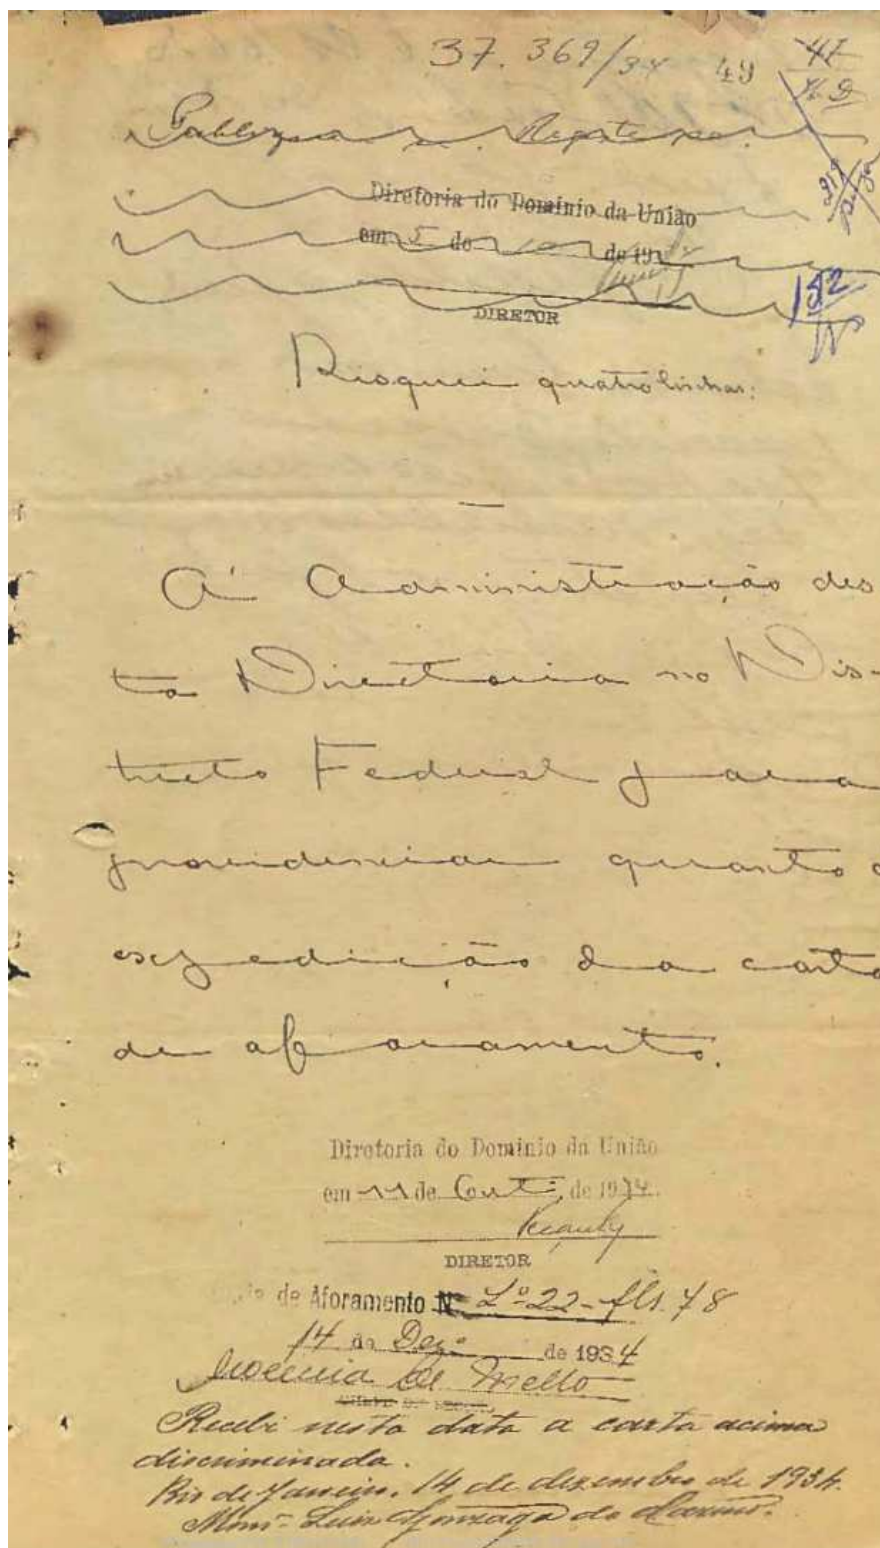 37.369/34 49 47
Diretoria do Dominio da União
em 5 de de 19
DIRETOR
152
Risquei quatro linhas:
A' Administração des
ta Directoria no Dis-
tricto Federal para
providenciar quanto a
expedição da carta
de aforamento.
Diretoria do Dominio da União
em 11 de Out. de 1934
DIRETOR
de Aforamento Nº Lº 22-fls. 78
14 de Dezº de 1934
de Mello
Recebi nesta data a carta acima
discriminada.
Rio de Janeiro, 14 de dezembro de 1934.
Monº Luiz Gonzaga do Carmo.